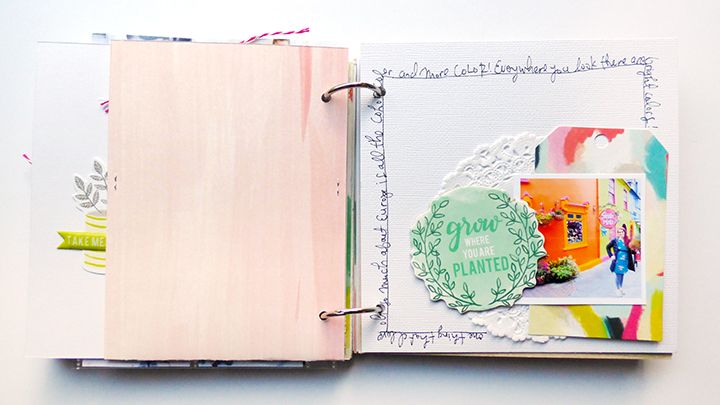 TAKE ME
one thing that I love
so much about Europe is all the color. Color
and more COLOR! Everywhere you look there are
bright colors!
grow
WHERE
YOU ARE
PLANTED